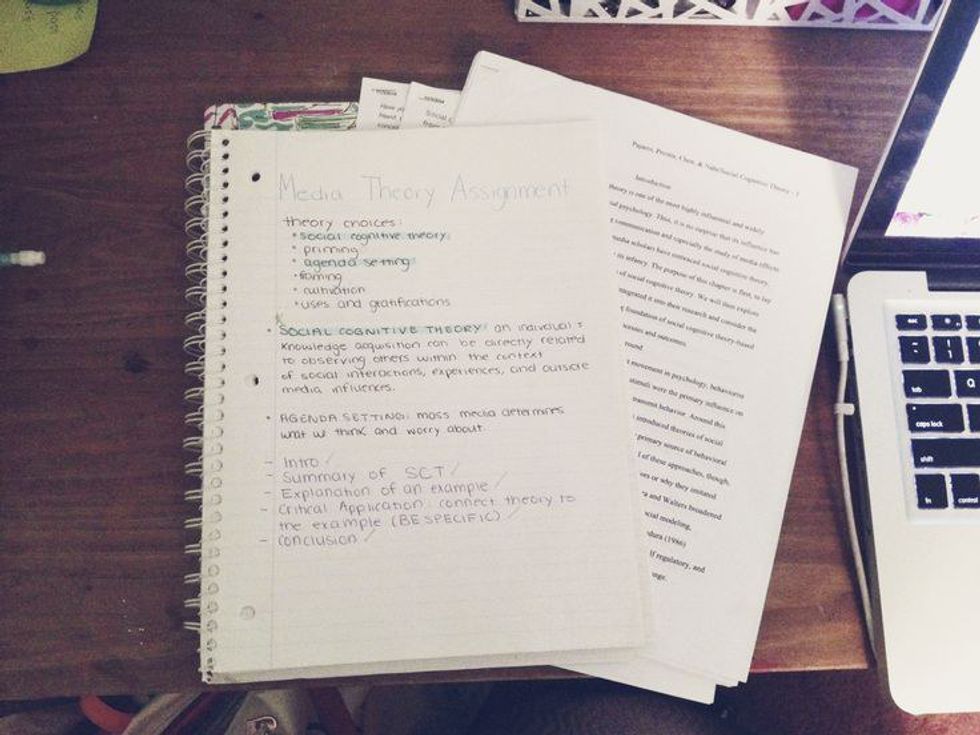 Media Theory Assignment
theory choices:
• social cognitive theory
• priming
• agenda setting
• framing
• cultivation
• uses and gratifications
• SOCIAL COGNITIVE THEORY: an individual's
knowledge acquisition can be directly related
to observing others within the context
of social interactions, experiences, and outside
media influences.
• AGENDA SETTING: mass media determines
what we think and worry about.
- Intro ✓
- Summary of SCT ✓
- Explanation of an example ✓
- Critical Application: connect theory to
the example (BE SPECIFIC) ✓
- conclusion ✓
Pajares, Prestin, Chen, & Nabi/Social Cognitive Theory - 1
Introduction
theory is one of the most highly influential and widely
psychology. Thus, it is no surprise that its influence has
communication and especially the study of media effects
media scholars have embraced social cognitive theory,
its infancy. The purpose of this chapter is first, to lay
of social cognitive theory. We will then explore
integrated it into their research and consider the
foundation of social cognitive theory-based
and outcomes.
movement in psychology, behaviorist
stimuli were the primary influence on
behavior. Around this
introduced theories of social
primary source of behavioral
of these approaches, though,
or why they imitated
and Walters broadened
modeling,
(1986)
regulatory, and
esc
tab
Q
caps lock
shift
fn
control